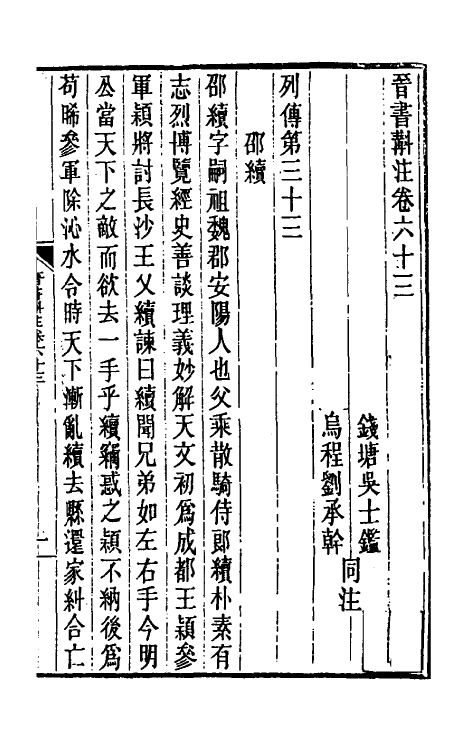 晉書斠注卷六十三
錢塘吳士鑑
烏程劉承幹
同注
列傳第三十三
邵續
邵續字嗣祖魏郡安陽人也父乘散騎侍郎續朴素有
志烈博覽經史善談理義妙解天文初爲成都王穎參
軍穎將討長沙王乂續諫曰續聞兄弟如左右手今明
公當天下之敵而欲去一手乎續竊惑之穎不納後爲
苟晞參軍除沁水令時天下漸亂續去縣還家糾合亡
晉書斠注卷六十三
一